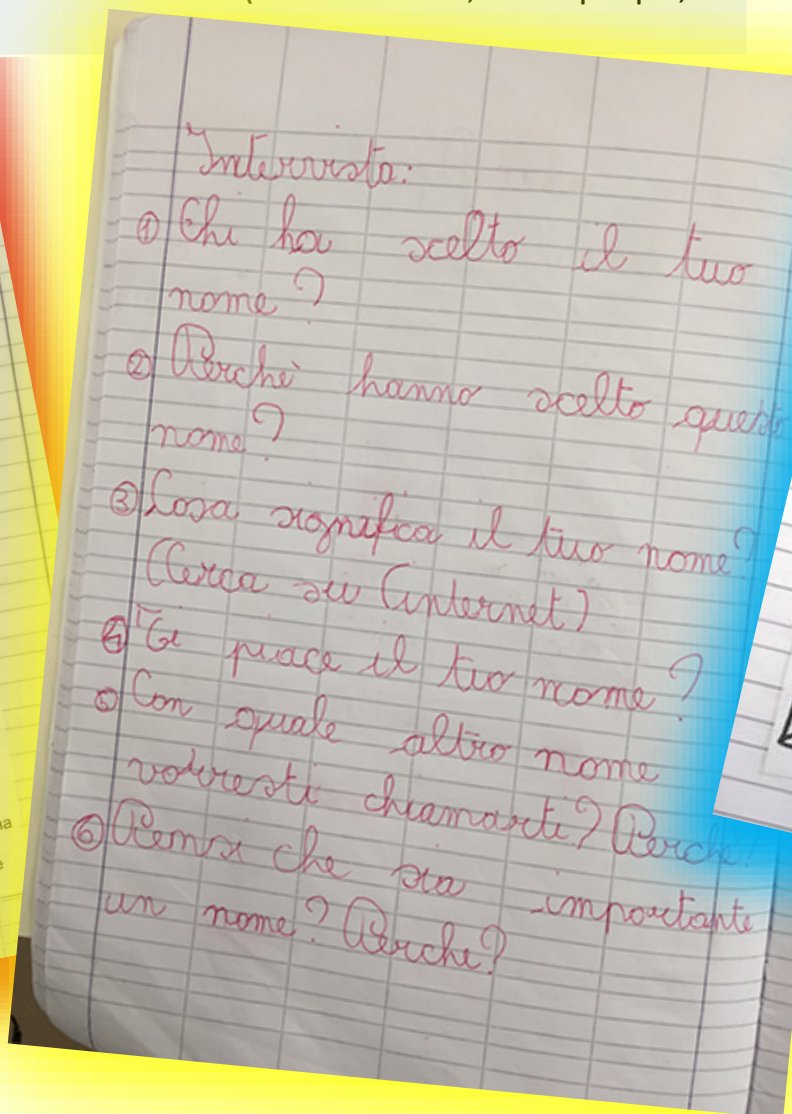 Intervista:
① Chi ha scelto il tuo
nome?
② Perchè hanno scelto questo
nome?
③ Cosa significa il tuo nome?
(Cerca su internet)
④ Ti piace il tuo nome?
⑤ Con quale altro nome
vorresti chiamarti? Perchè?
⑥ Pensi che sia importante
un nome? Perche?